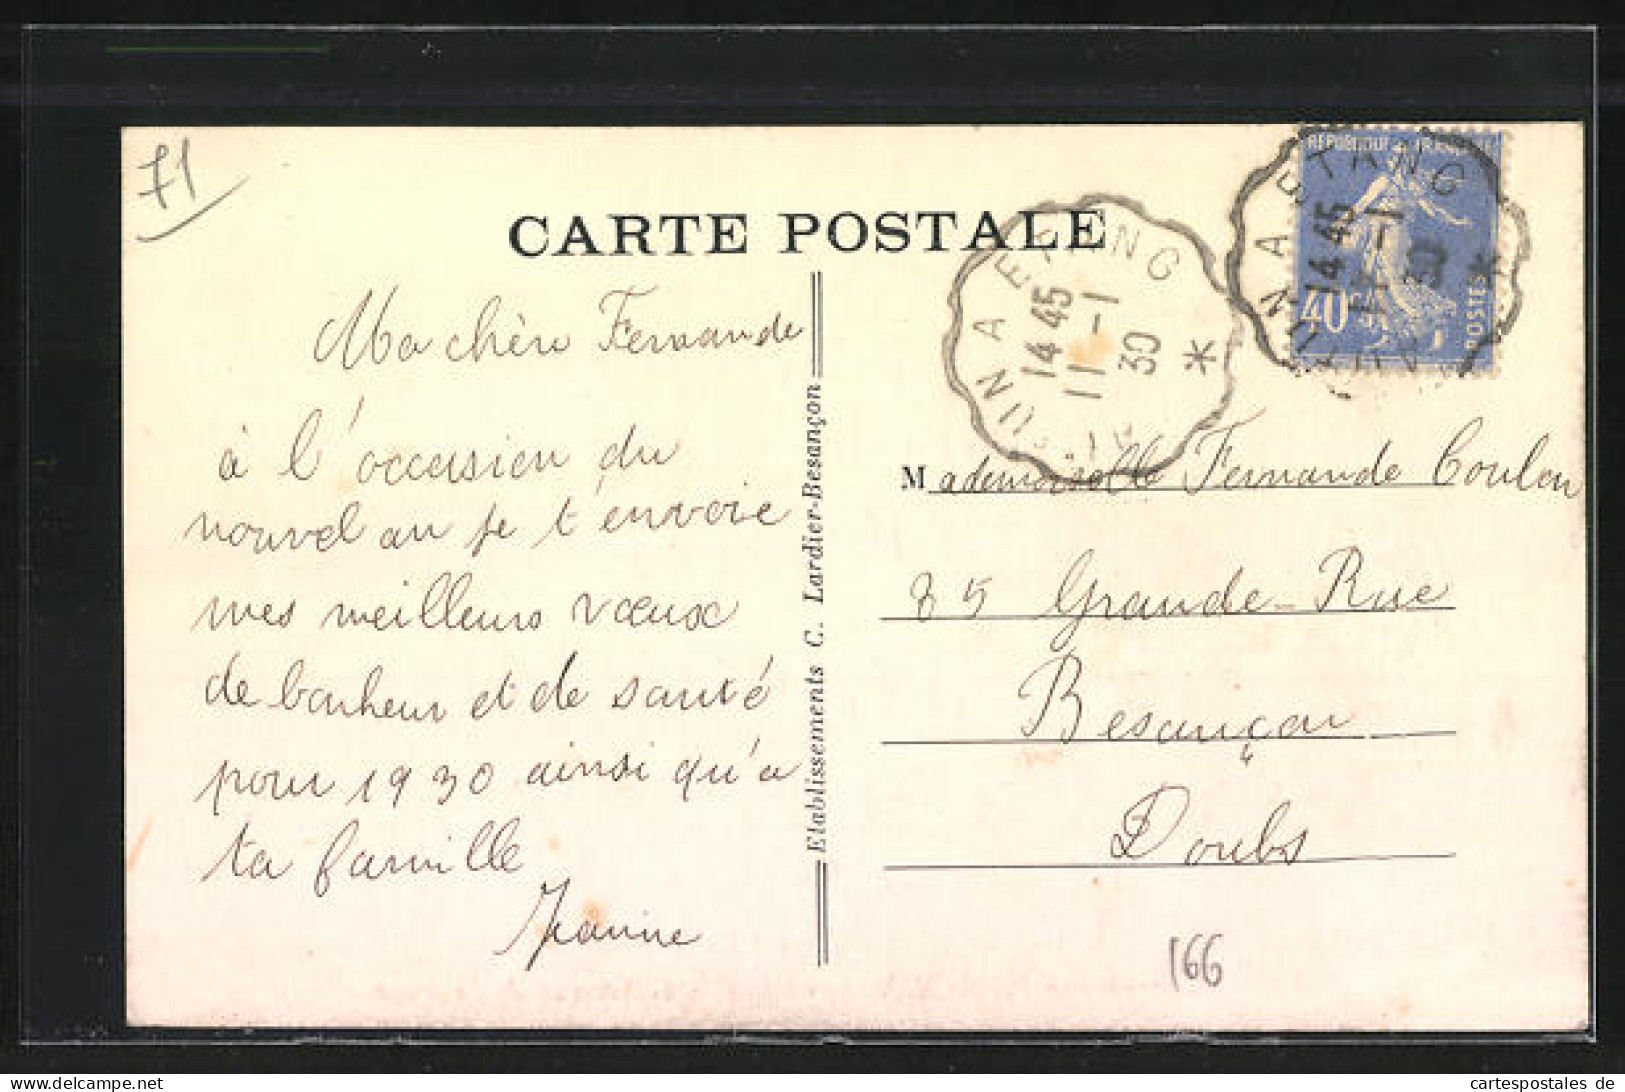 71
CARTE POSTALE
Ma chère Fernande
à l'occasion du
nouvel an je t'envoie
mes meilleurs vœux
de bonheur et de santé
pour 1930 ainsi qu'a
ta famille
Jeanne
Etablissements C. Lardier-Besançon
A ETANG
14 45
11 -1
30
*
REPUBLIQUE FRANCAISE
40c
POSTES
A ETANG
14 45
11 -1
30
*
Mademoiselle Fernande Coulon
85 Grande-Rue
Besançon
Doubs
166
cartespostales de